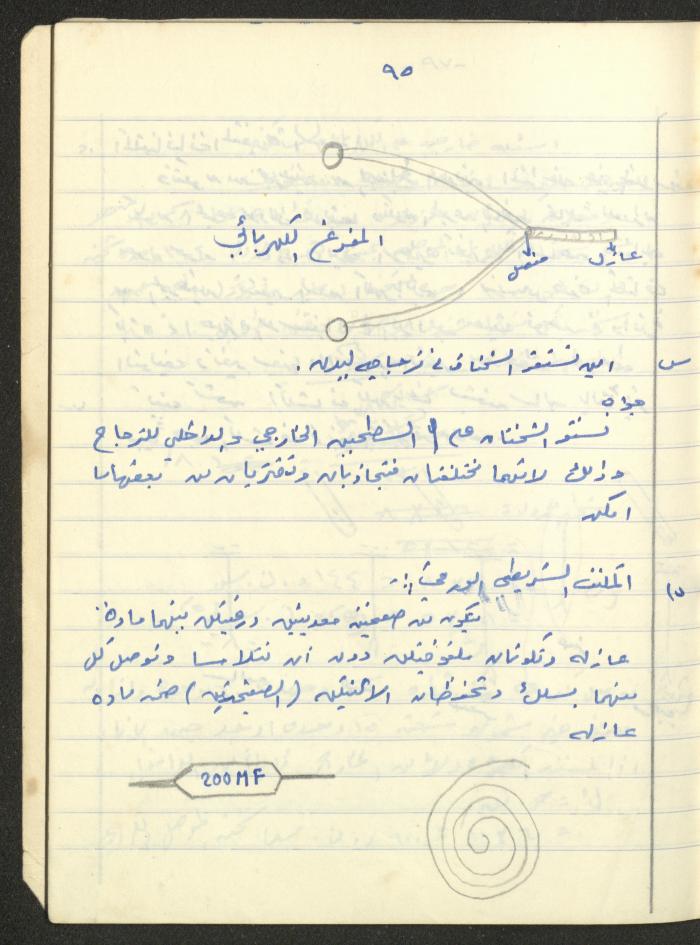 ٩٥
المفرغ الكهربائي
عازل
مفصل
س اين تستقر الشحنات في زجاجة ليدن .
جواب
تستقر الشحنتان على السطحين الخارجي والداخلي للزجاج
وذلك لانهما مختلفتان فتجاذبان وتقتربان من بعضهما ما
امكن
المكثف الشريطي الورقي :-
يتكون من صفيحتين معدنيتين ورقيتين بينهما مادة
عازله وتكونان ملفوفتين دون ان تتلامسا وتوصل كل
منهما بسلك وتحفظان الاثنتين (الصفيحتين) ضمن ماده
عازله
200 MF